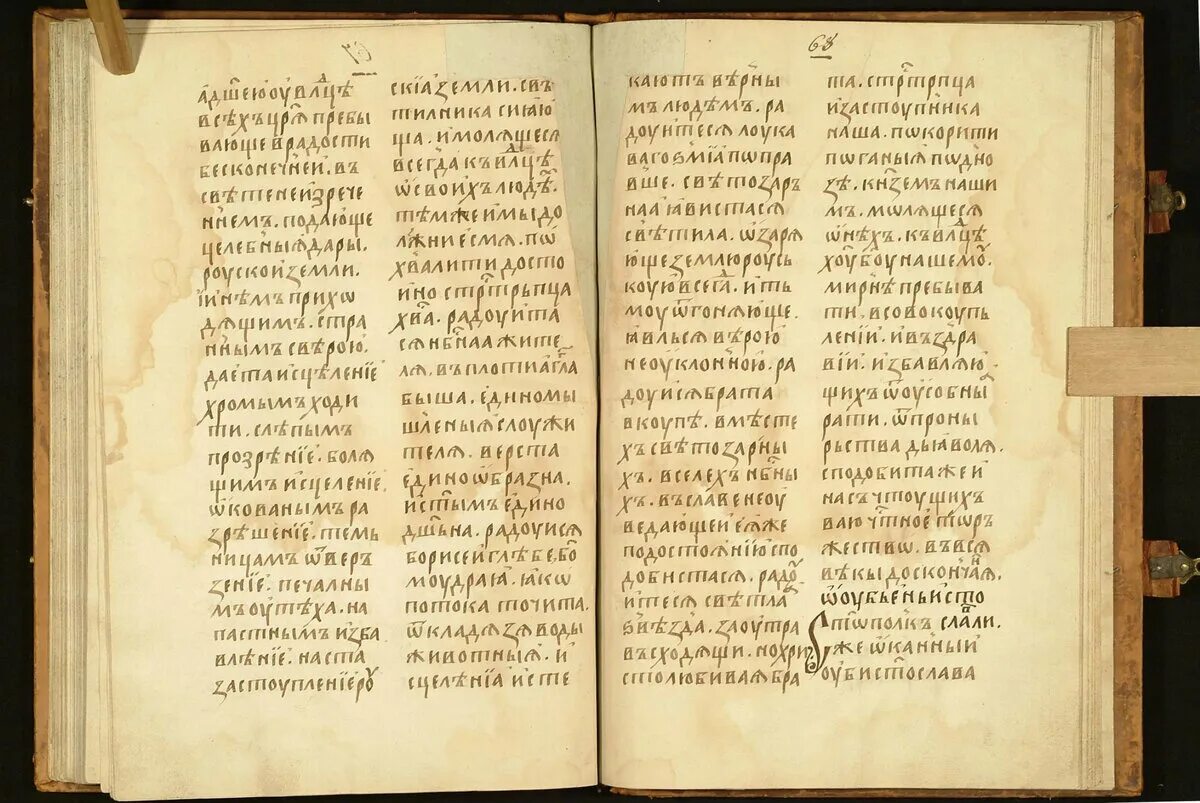 адш҃еюоувл҃дце
всѣхъцр҃ѧпребы
вающевърадости
бесконечнеи. въ
свѣтенеизрече
ннемъ. подающе
целебныꙗдары.
роускоиземли.
їинѣмъприхѡ
дѧщимъ. стра
ннымъсвѣрою.
даетаисцѣленїе
хромымъходи
ти. слѣпымъ
прозрѣнїе. болѧ
щимъисцеленїе.
ѡкованымъра
зрѣшенїе. темь
ницамъѿверъ
зенїе. печалны
мъоутѣха. на
пастнымъизба
вленїе. наста
застоупленїеро҃у
скїаземли. свѣ
тилникасиꙗю
ща. имолѧщесѧ
всегдакъвл҃дце
ѡсвоихълюдѣ҃.
тѣмжеимыдо
лжниесмѧ. пѡ
хвалитидосто
иностр҃тртьпца
хв҃а. радоуита
сѧнбн҃аажите
лѧ, въплотиаг҃гла
быша. единомы
шленыѧслоужи
телѧ. верста
единоѡбразна.
ист҃ымъедино
дш҃ьна. радоуисѧ
борисеиглѣбе, бг҃о
моудраꙗ. ꙗкѡ
потокаточита.
ѿкладѧзѧводы
животныѧ. и
сцелѣнїаисте
68
каютъвѣрны
мълюдѣмъ. ра
доуитесѧлоука
вагоѕмїапѡпра
вше. свѣтозаръ
наꙗꙗвистасѧ
свѣтила. ѡзарѧ
ющеземлюроусь
коуювсегд҃а. итъ
моуѿгонѧюще.
ꙗвльсѧвѣрою
неоуклонною. ра
доуисѧбрата
вкоупѣ. вместе
хъсвѣтозарны
хъ. вселехънбн҃ны
хъ. въславенеоу
ведающеиеꙗже
подостоꙗнїюспо
добистасѧ. радо҃у
итесѧсвѣтла҃ѧ
ѕвѣзда. заоутра
въсходѧщи. нохри
столюбиваꙗбра
та. стр҃тртпца
изастоупника
наша. покорити
поганыѧпѡдно
зѣ. кнз҃емънаши
мъ. мѡлѧщесѧ
ѡнехъ. къвл҃дце
хо҃убо҃унашемо҃у.
мирнепребыва
ти, всовокоупь
ленїи. ивъздра
вїи. избавлѧю
щихъѿоусобны
рати. ѿпроны
рьствадьꙗволѧ.
сподобитажеи
насъчтоущихъ
ваючт҃ноетр҃ъ
жествѡ. въвсѧ
вѣкыдоскончан҃ѧ.
ѿоубьеньисто
пт҃ѡполкъслав҃ли.
жеѡканныи
оубист҃ослава